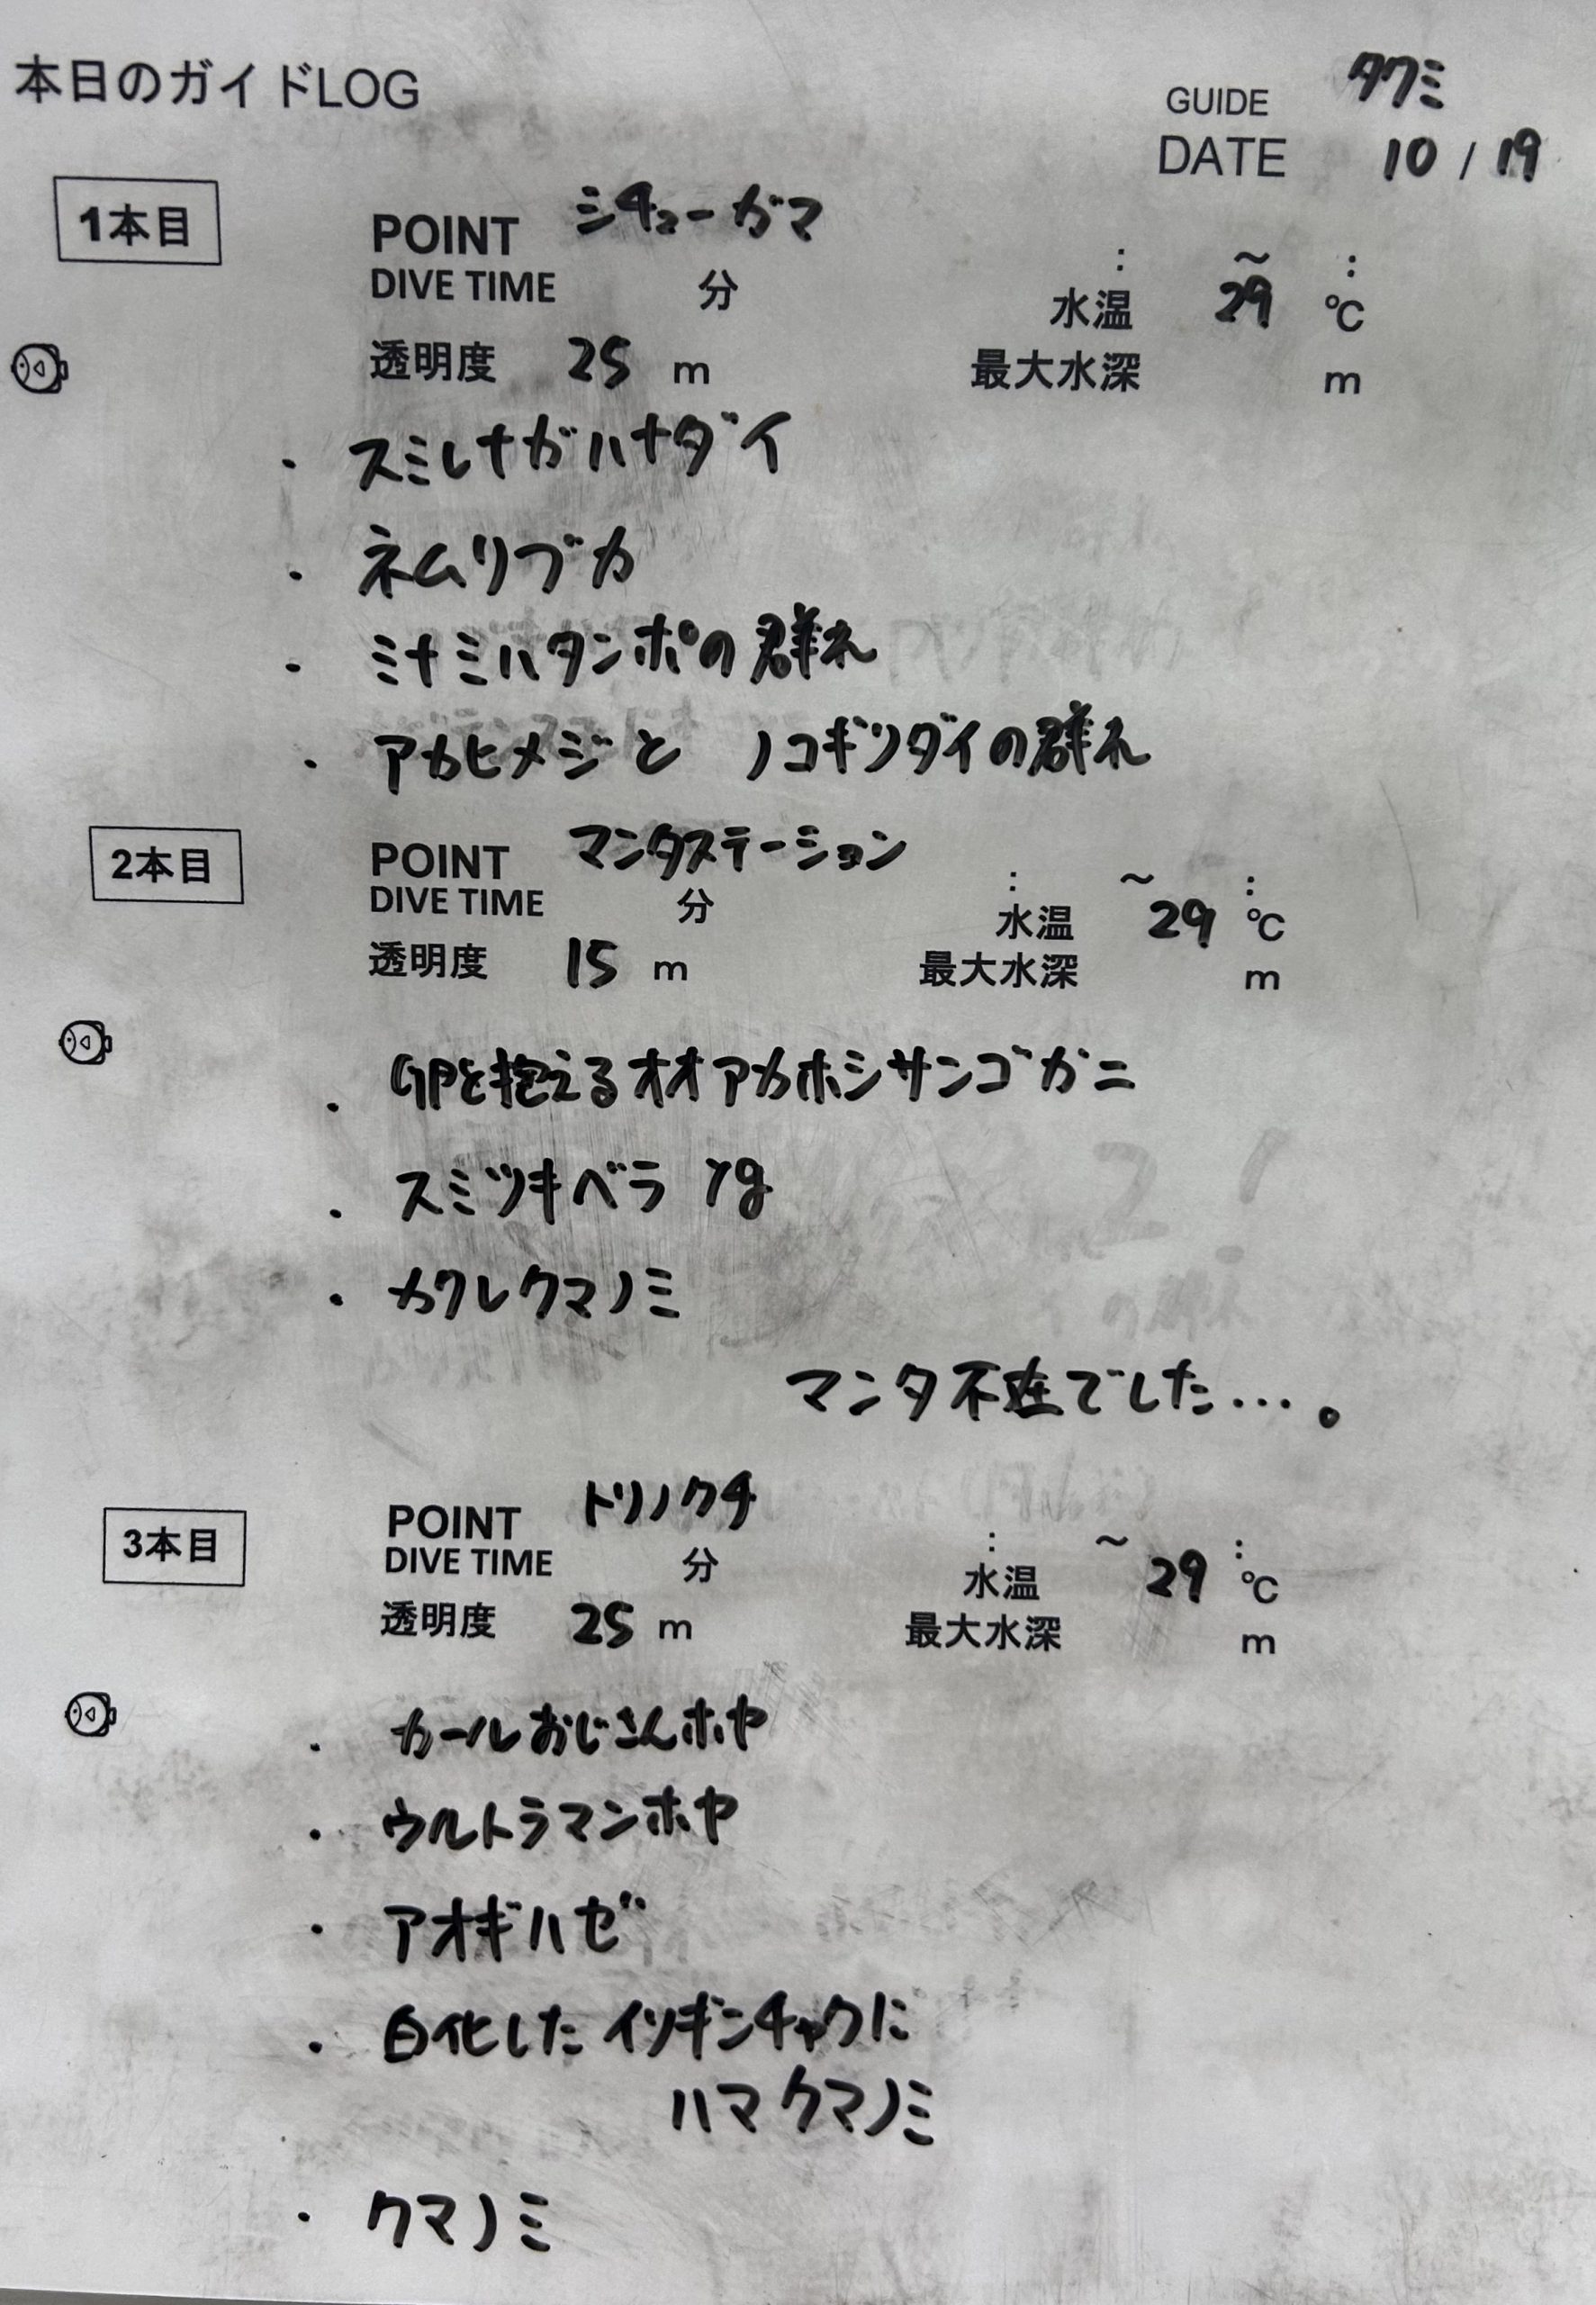 本日のガイドLOG
GUIDE タクミ
DATE 10 / 19
1本目
POINT シチューガマ
: ~ :
DIVE TIME 分 水温 29 ℃
透明度 25 m 最大水深 m
・スミレナガハナダイ
・ネムリブカ
・ミナミハタンポの群れ
・アカヒメジと ノコギリダイの群れ
2本目
POINT マンタステーション
: ~ :
DIVE TIME 分 水温 29 ℃
透明度 15 m 最大水深 m
・卵を抱えるオオアカホシサンゴガニ
・スミツキベラ yg
・カクレクマノミ
マンタ不在でした…。
3本目
POINT トリノクチ
: ~ :
DIVE TIME 分 水温 29 ℃
透明度 25 m 最大水深 m
・カールおじさんホヤ
・ウルトラマンホヤ
・アオギハゼ
・白化したイソギンチャクに
ハマクマノミ
・クマノミ